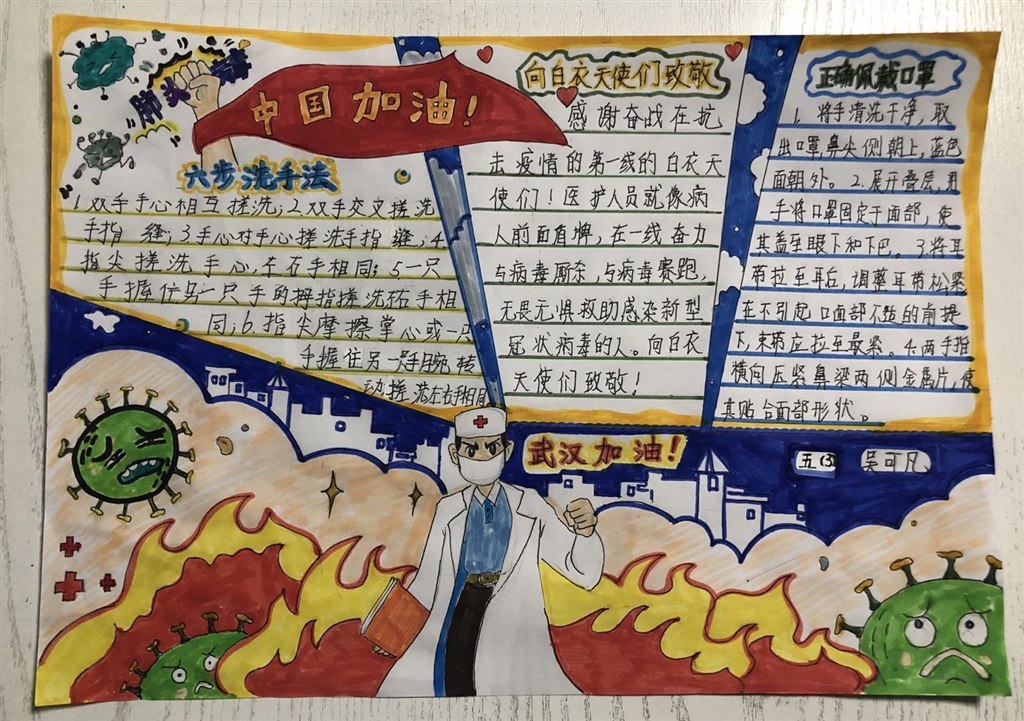 中国加油！
六步洗手法
1.双手手心相互搓洗；2.双手交叉搓洗
手指缝；3手心对手心搓洗手指缝；4
指尖搓洗手心，左右手相同；5一只
手握住另一只手的拇指搓洗左右手相
同；6.指尖摩擦掌心或一只
手握住另一只手腕转
动搓洗左右手相同
向白衣天使们致敬
感谢奋战在抗
击疫情的第一线的白衣天
使们！医护人员就像病
人前面盾牌，在一线奋力
与病毒厮杀，与病毒赛跑，
无畏无惧救助感染新型
冠状病毒的人。向白衣
天使们致敬！
正确佩戴口罩
1.将手清洗干净，取
出口罩鼻尖侧朝上，蓝色
面朝外。2.展开叠层，用
手将口罩固定于面部，使
其盖至眼下和下巴。3.将耳
带拉至耳后，调整耳带松紧
在不引起口面部不适的前提
下，束带应拉至最紧。4.两手指
横向压紧鼻梁两侧金属片，使
其贴合面部形状。
武汉加油！
五(3) 吴可凡